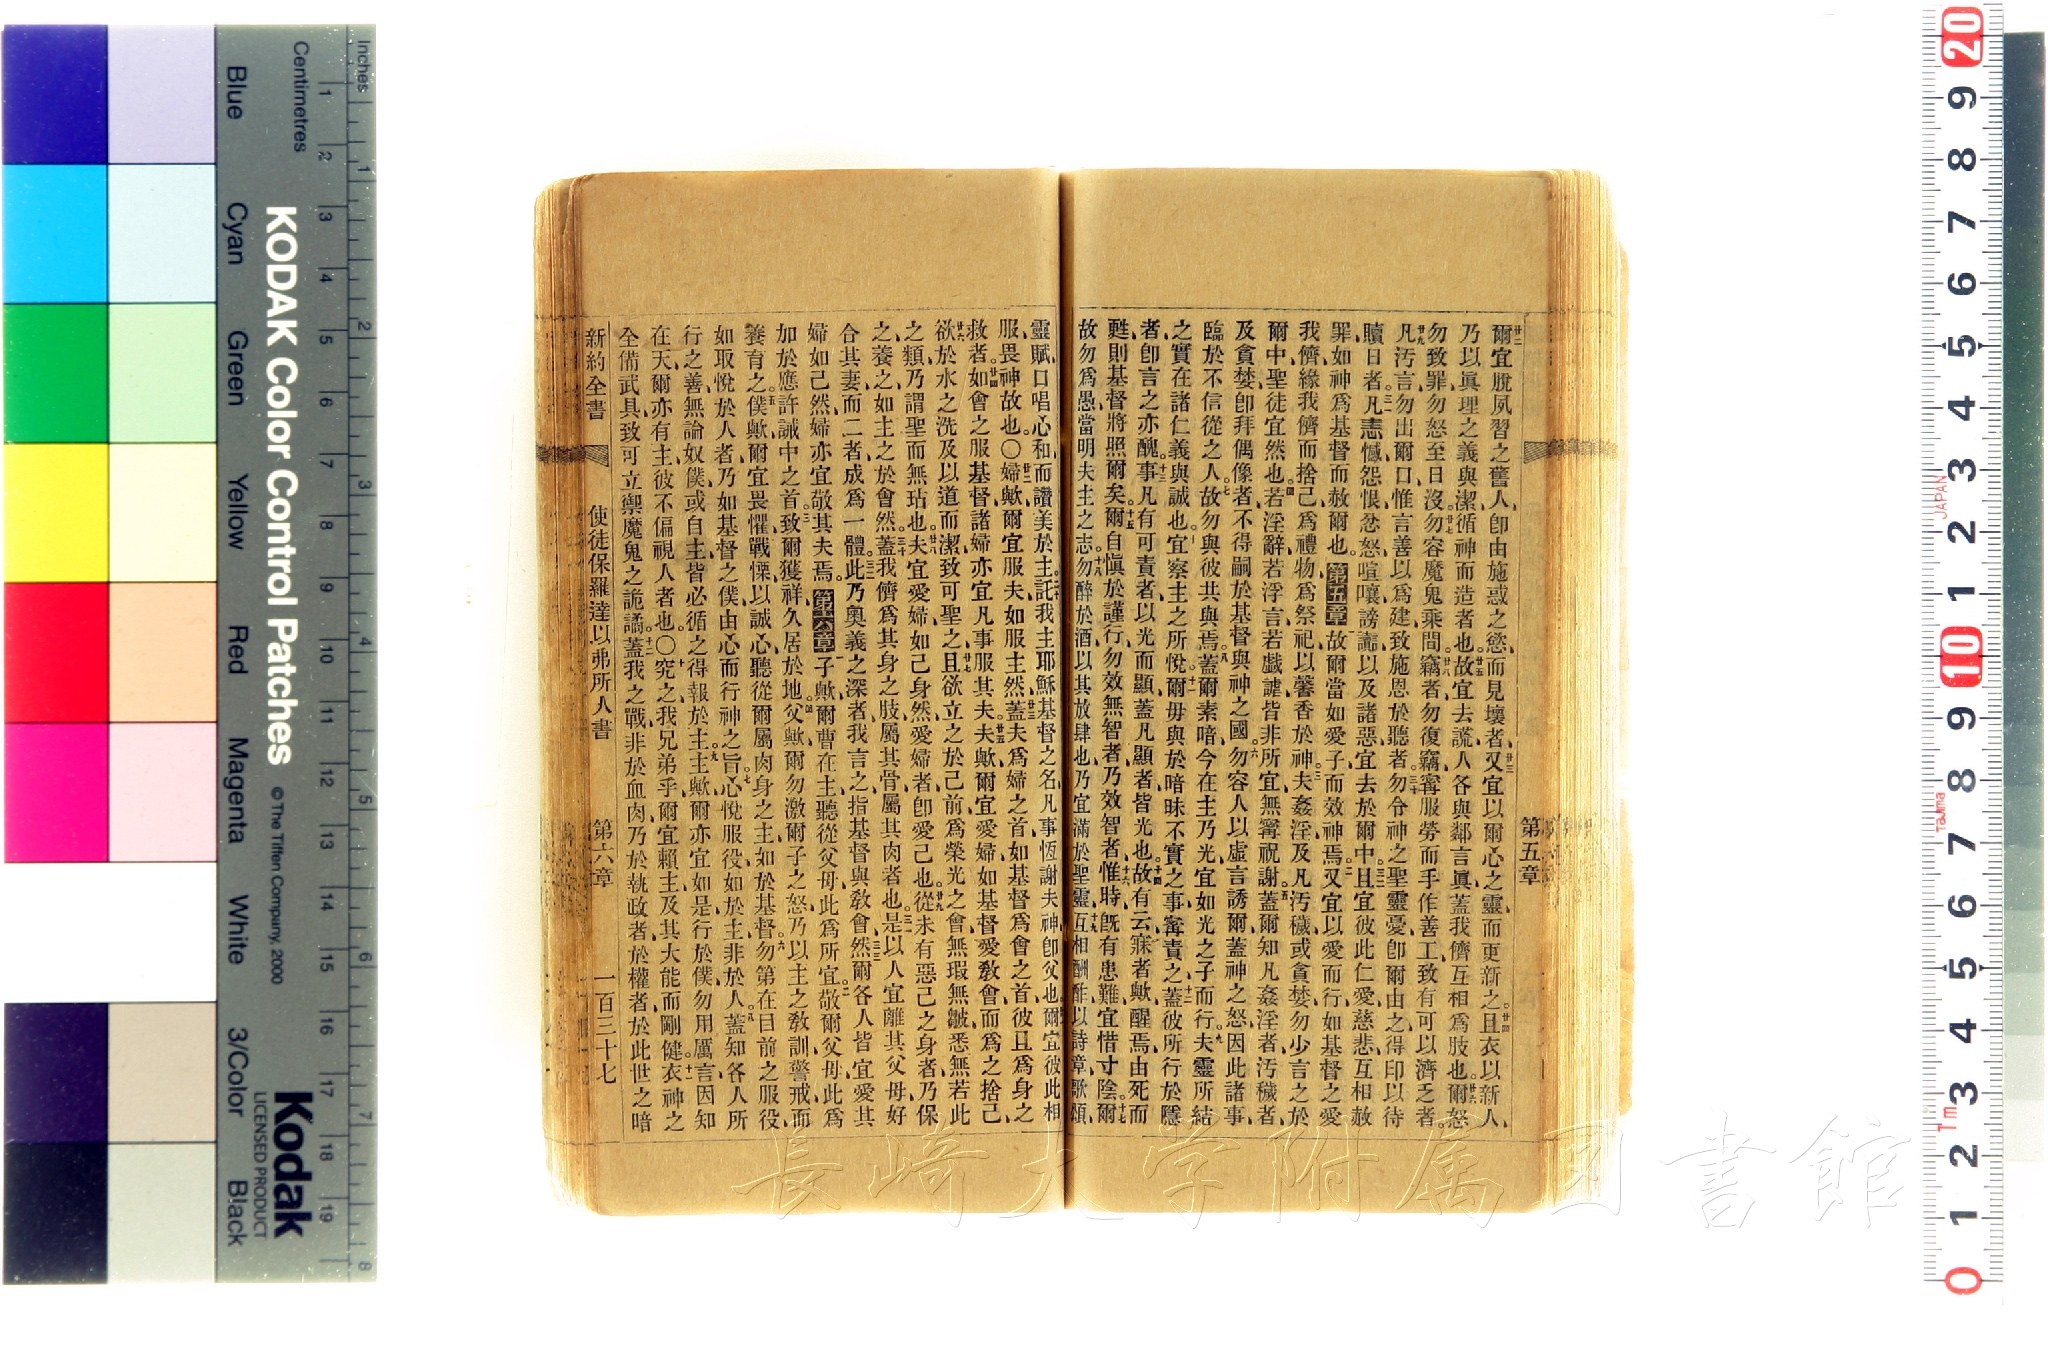 第五章
爾宜脫夙習之舊人、卽由施惑之慾、而見壞者、又宜以爾心之靈、而更新之。且衣以新人、
乃以眞理之義與潔、循神而造者也。故宜去謊、人各與鄰言眞、蓋我儕互相爲肢也。爾怒
勿致罪、勿怒至日沒、勿容魔鬼乘間。竊者勿復竊、寧服勞、而手作善工、致有可以濟乏者。
凡汚言勿出爾口、惟言善以爲建、致施恩於聽者。勿令神之聖靈憂、卽爾由之得印以待
贖日者。凡恚憾、怨恨、忿怒、喧嚷、謗讟、以及諸惡、宜去於爾中。且宜彼此仁愛慈悲、互相赦
罪、如神爲基督而赦爾也。第五章 故爾當如愛子而效神焉。又宜以愛而行、如基督之愛
我儕、緣我儕而捨己、爲禮物爲祭祀、以馨香於神。夫姦淫、及凡汚穢、或貪婪、勿少言之於
爾中、聖徒宜然也。若淫辭、若浮言、若戲謔、皆非所宜、無寧祝謝。蓋爾知凡姦淫者、汚穢者、
及貪婪卽拜偶像者、不得嗣於基督與神之國。勿容人以虛言誘爾、蓋神之怒、因此諸事、
臨於不信從之人。故勿與彼共與焉。蓋爾素暗、今在主乃光、宜如光之子而行。夫靈所結
之實、在諸仁義與誠也。宜察主之所悅。爾毋與於暗昧不實之事、寧責之。蓋彼所行於隱
者、卽言之亦醜。事凡有可責者、以光而顯、蓋凡顯者皆光也。故有云、寐者歟、醒焉、由死而
甦、則基督將照爾矣。爾自愼於謹行、勿效無智者、乃效智者、惟時旣有患難、宜惜寸陰。爾
故勿爲愚、當明夫主之志。勿醉於酒、以其放肆也、乃宜滿於聖靈、互相酬酢、以詩章、歌頌、
靈賦、口唱心和、而讚美於主。託我主耶穌基督之名、凡事恆謝夫神卽父也。爾宜彼此相
服、畏神故也。〇婦歟、爾宜服夫、如服主然。蓋夫爲婦之首、如基督爲會之首、彼且爲身之
救者。如會之服基督、諸婦亦宜凡事服其夫。夫歟、爾宜愛婦、如基督愛敎會、而爲之捨己、
欲於水之洗、及以道而潔、致可聖之、且欲立之於己前、爲榮光之會、無瑕無皺、悉無若此
之類、乃謂聖而無玷也。夫宜愛婦如己身然、愛婦者、卽愛己也。從未有惡己之身者、乃保
之養之、如主之於會然。蓋我儕爲其身之肢、屬其骨、屬其肉者也。是以人宜離其父母、好
合其妻、而二者成爲一體。此乃奧義之深者、我言之指基督與敎會。然爾各人皆宜愛其
婦如己然、婦亦宜敬其夫焉。第六章 子歟、爾曹在主、聽從父母、此爲所宜。敬爾父母、此爲
加於應許誡中之首、致爾獲祥、久居於地。父歟、爾勿激爾子之怒、乃以主之敎訓警戒而
養育之。僕歟、爾宜畏懼戰慄、以誠心聽從爾屬肉身之主、如於基督、勿第在目前之服役、
如取悅於人者、乃如基督之僕、由心而行神之旨、心悅服役、如於主、非於人。蓋知各人所
行之善、無論奴僕、或自主、皆必循之得報於主。主歟、爾亦宜如是行於僕、勿用厲言、因知
在天爾亦有主、彼不偏視人者也。〇究之我兄弟乎、爾宜賴主、及其大能而剛健、衣神之
全備武具、致可立禦魔鬼之詭譎。蓋我之戰、非於血肉、乃於執政者、於權者、於此世之暗
新約全書　使徒保羅達以弗所人書　第六章　一百三十七
Inches
Centimetres
KODAK Color Control Patches © The Tiffen Company, 2000
Kodak
LICENSED PRODUCT
Blue Cyan Green Yellow Red Magenta White 3/Color Black
JAPAN
Tajima
長崎大学附属図書館